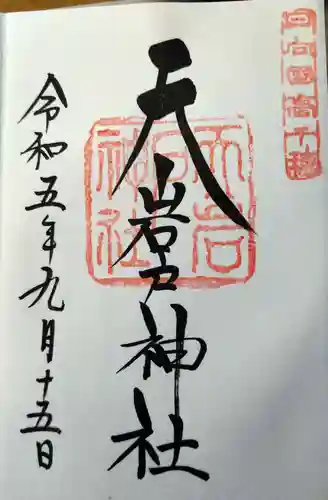 日向国高千穂
天岩戸神社
天岩戸神社
令和五年九月十五日